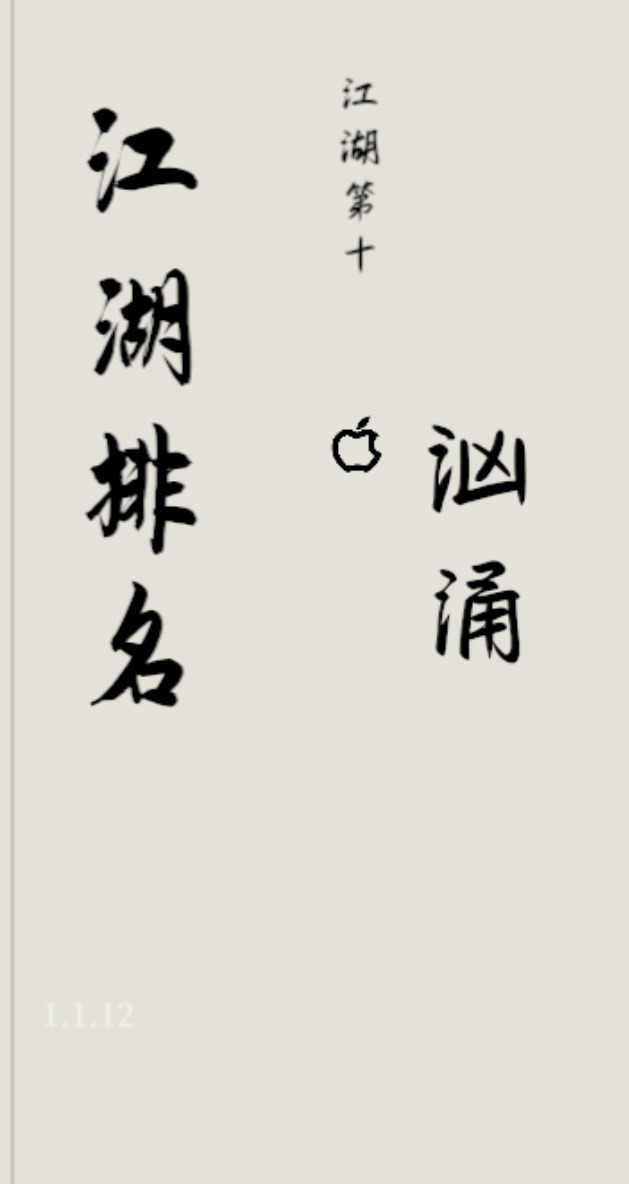 江湖排名
江湖第十
汹涌
1.1.12